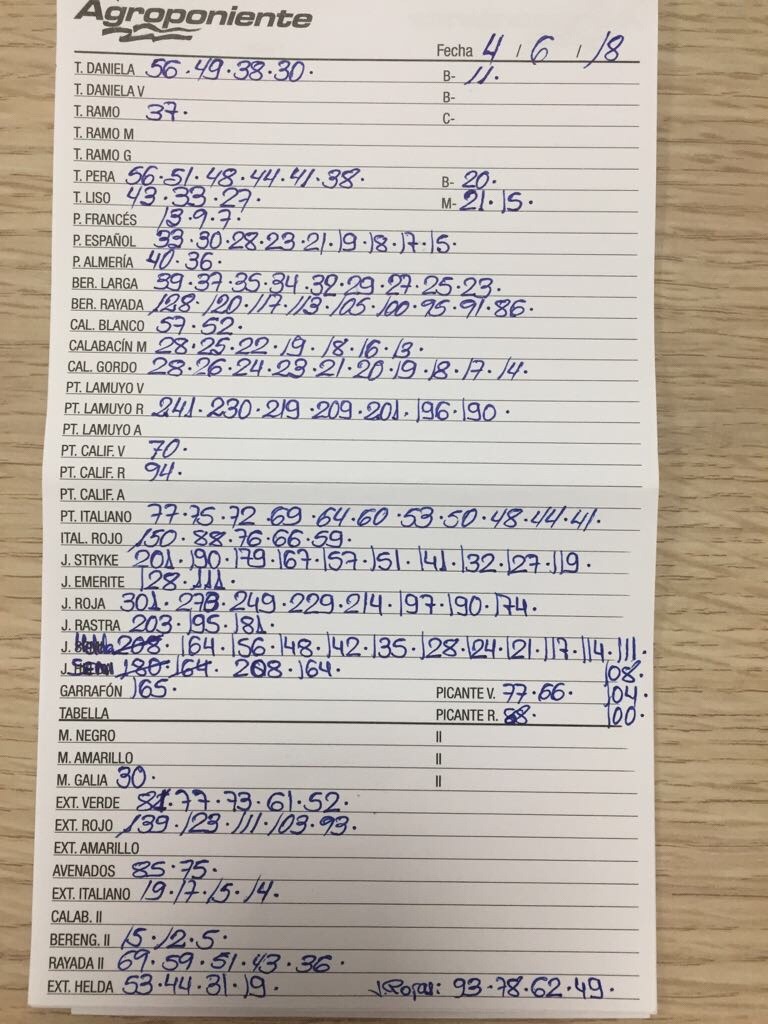 Agroponiente
Fecha 4 / 6 / 18
T. DANIELA 56.49.38.30. B- 11.
T. DANIELA V B-
T. RAMO 37. C-
T. RAMO M
T. RAMO G
T. PERA 56.51.48.44.41.38. B- 20.
T. LISO 43.33.27. M- 21.15.
P. FRANCÉS 13.9.7.
P. ESPAÑOL 33.30.28.23.21.19.18.17.15.
P. ALMERÍA 40.36.
BER. LARGA 39.37.35.34.32.29.27.25.23.
BER. RAYADA 128.120.117.113.105.100.95.91.86.
CAL. BLANCO 57.52.
CALABACÍN M 28.25.22.19.18.16.13.
CAL. GORDO 28.26.24.23.21.20.19.18.17.14.
PT. LAMUYO V
PT. LAMUYO R 241.230.219.209.201.196.190.
PT. LAMUYO A
PT. CALIF. V 70.
PT. CALIF. R 94.
PT. CALIF. A
PT. ITALIANO 77.75.72.69.64.60.53.50.48.44.41.
ITAL. ROJO 150.88.76.66.59.
J. STRYKE 201.190.179.167.157.151.141.132.127.119.
J. EMERITE 128.111.
J. ROJA 301.273.249.229.214.197.190.174.
J. RASTRA 203.195.181.
J. 208. 164.156.148.142.135.128.124.121.117.114.111.
J. 180.164. 208.164. 108.
GARRAFÓN 165. PICANTE V. 77.66. 104.
TABELLA PICANTE R. 88. 100.
M. NEGRO II
M. AMARILLO II
M. GALIA 30. II
EXT. VERDE 81.77.73.61.52.
EXT. ROJO 139.123.111.103.93.
EXT. AMARILLO
AVENADOS 85.75.
EXT. ITALIANO 19.17.15.14.
CALAB. II
BERENG. II 15.12.5.
RAYADA II 69.59.51.43.36.
EXT. HELDA 53.44.31.19. J.Rojas: 93.78.62.49.